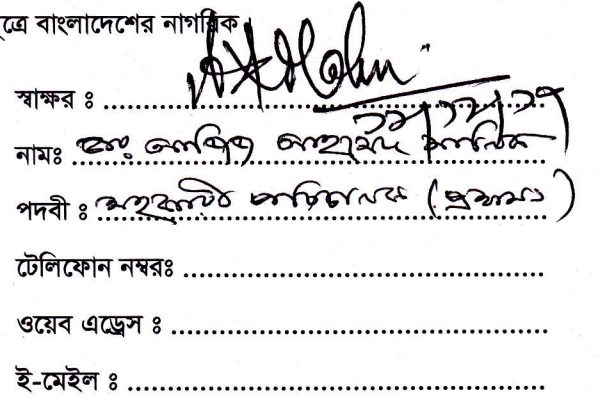 ত্রে বাংলাদেশের নাগরিক
স্বাক্ষর ঃ
নামঃ ডাঃ আহমদ
পদবী ঃ সহকারী পরিচালক (প্রশাসন)
টেলিফোন নম্বরঃ
ওয়েব এড্রেস ঃ
ই-মেইল ঃ